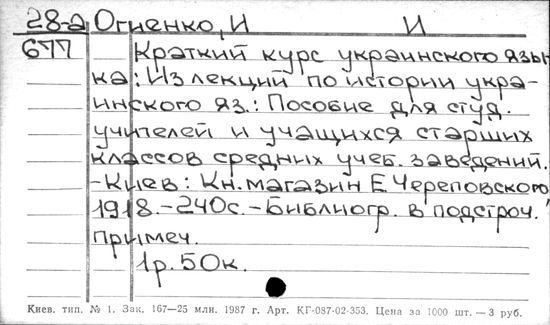 28-а Огиенко, И И
677 Краткий курс украинского язы-
ка: Из лекций по истории укра-
инского яз.: Пособие для студ.
учителей и учащихся старших
классов средних учеб. заведений.
-Киев: Кн. магазин Е. Череповского
1918.-240с.-Библиогр. в подстроч.
примеч.
1р. 50к.
Киев. тип. № 1. Зак. 167—25 млн. 1987 г. Арт. КГ-087-02-353. Цена за 1000 шт. — 3 руб.